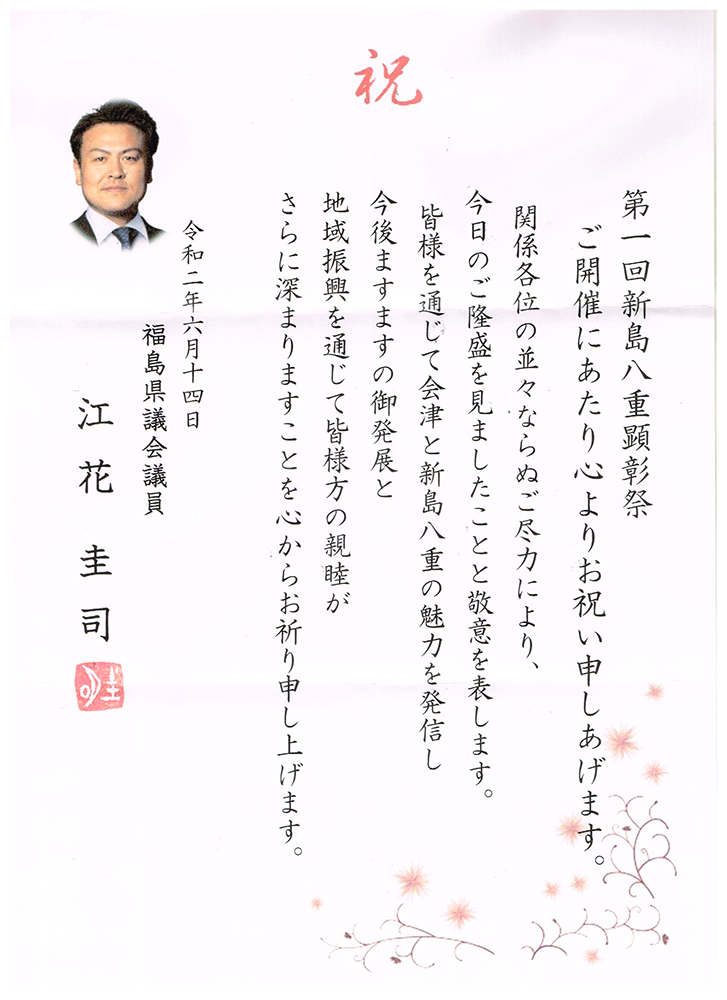 祝
第一回新島八重顕彰祭
ご開催にあたり心よりお祝い申しあげます。
関係各位の並々ならぬご尽力により、
今日のご隆盛を見ましたことと敬意を表します。
皆様を通じて会津と新島八重の魅力を発信し
今後ますますの御発展と
地域振興を通じて皆様方の親睦が
さらに深まりますことを心からお祈り申し上げます。
令和二年六月十四日
福島県議会議員
江花圭司